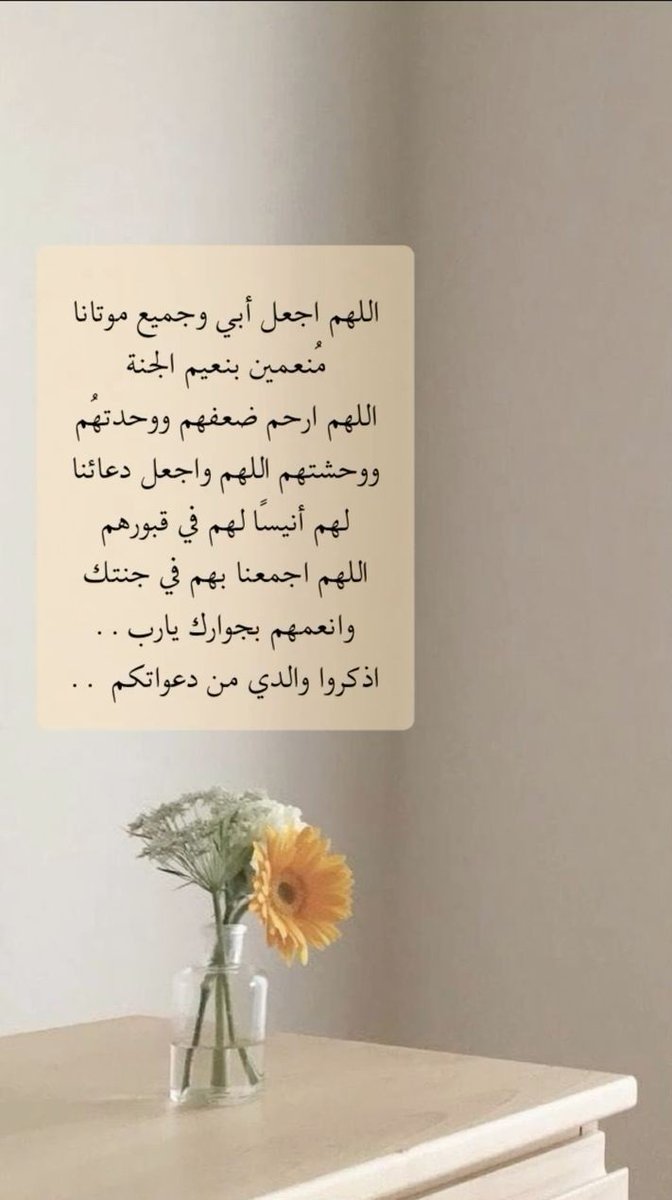 اللهم اجعل أبي وجميع موتانا
مُنعمين بنعيم الجنة
اللهم ارحم ضعفهم ووحدتهُم
ووحشتهم اللهم واجعل دعائنا
لهم أنيسًا لهم في قبورهم
اللهم اجمعنا بهم في جنتك
وانعمهم بجوارك يارب . .
اذكروا والدي من دعواتكم . .